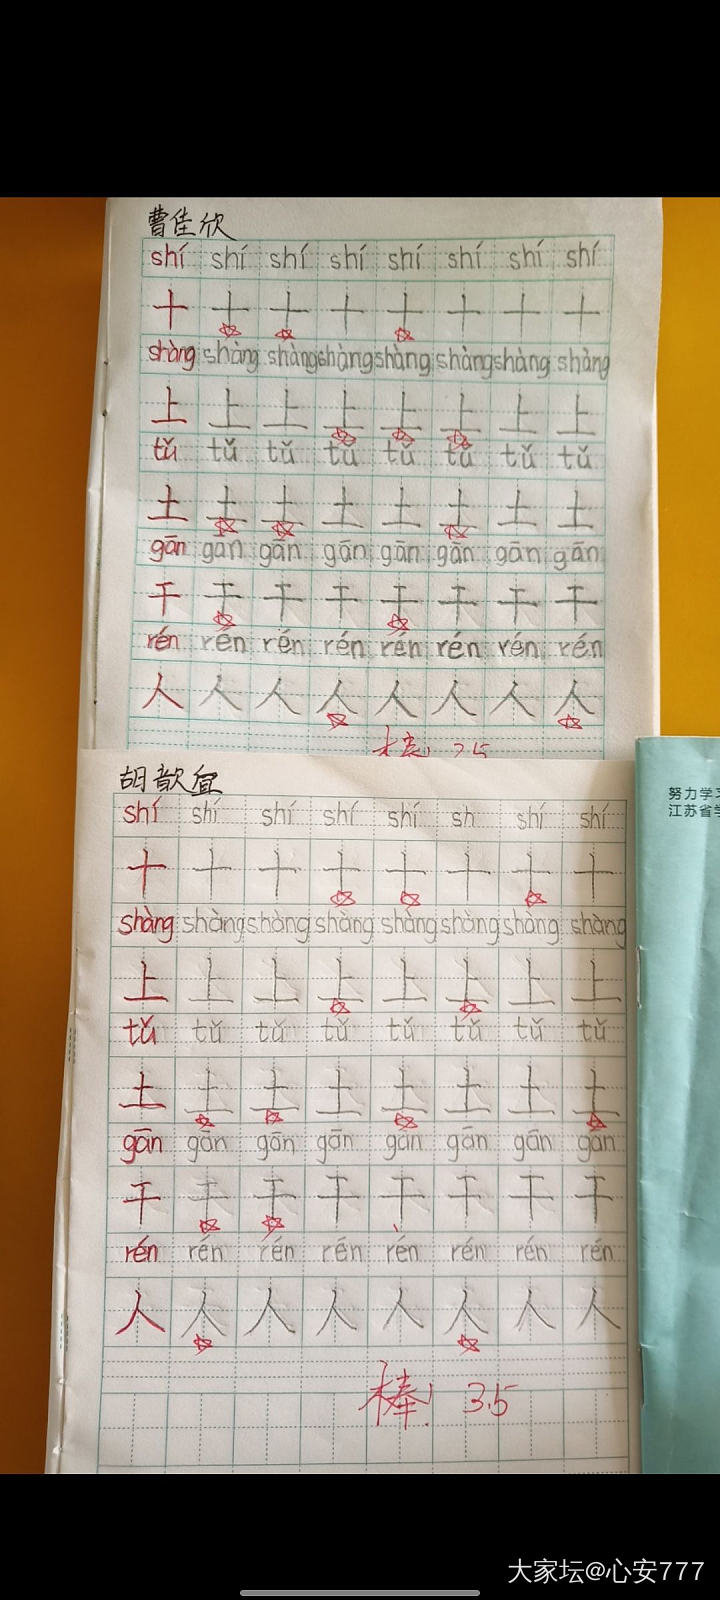 曹佳欣
shí shí shí shí shí shí shí shí
十 十 十 十 十 十 十 十
shàng shàng shàng shàng shàng shàng shàng shàng
上 上 上 上 上 上 上 上
tǔ tǔ tǔ tǔ tǔ tǔ tǔ tǔ
土 土 土 土 土 土 土 土
gān gān gān gān gān gān gān gān
干 干 干 干 干 干 干 干
rén rén rén rén rén rén rén rén
人 人 人 人 人 人 人 人
胡歆宜
shí shí shí shí shí sh shí shí
十 十 十 十 十 十 十 十
shàng shàng shàng shàng shàng shàng shàng shàng
上 上 上 上 上 上 上 上
tǔ tǔ tǔ tǔ tǔ tǔ tǔ tǔ
土 土 土 土 土 土 土 土
gān gān gān gān gān gān gān gān
干 干 干 干 干 干 干 干
rén rén rén rén rén rén rén rén
人 人 人 人 人 人 人 人
棒! 3.5
努力学习
江苏省学
大家坛@心安777